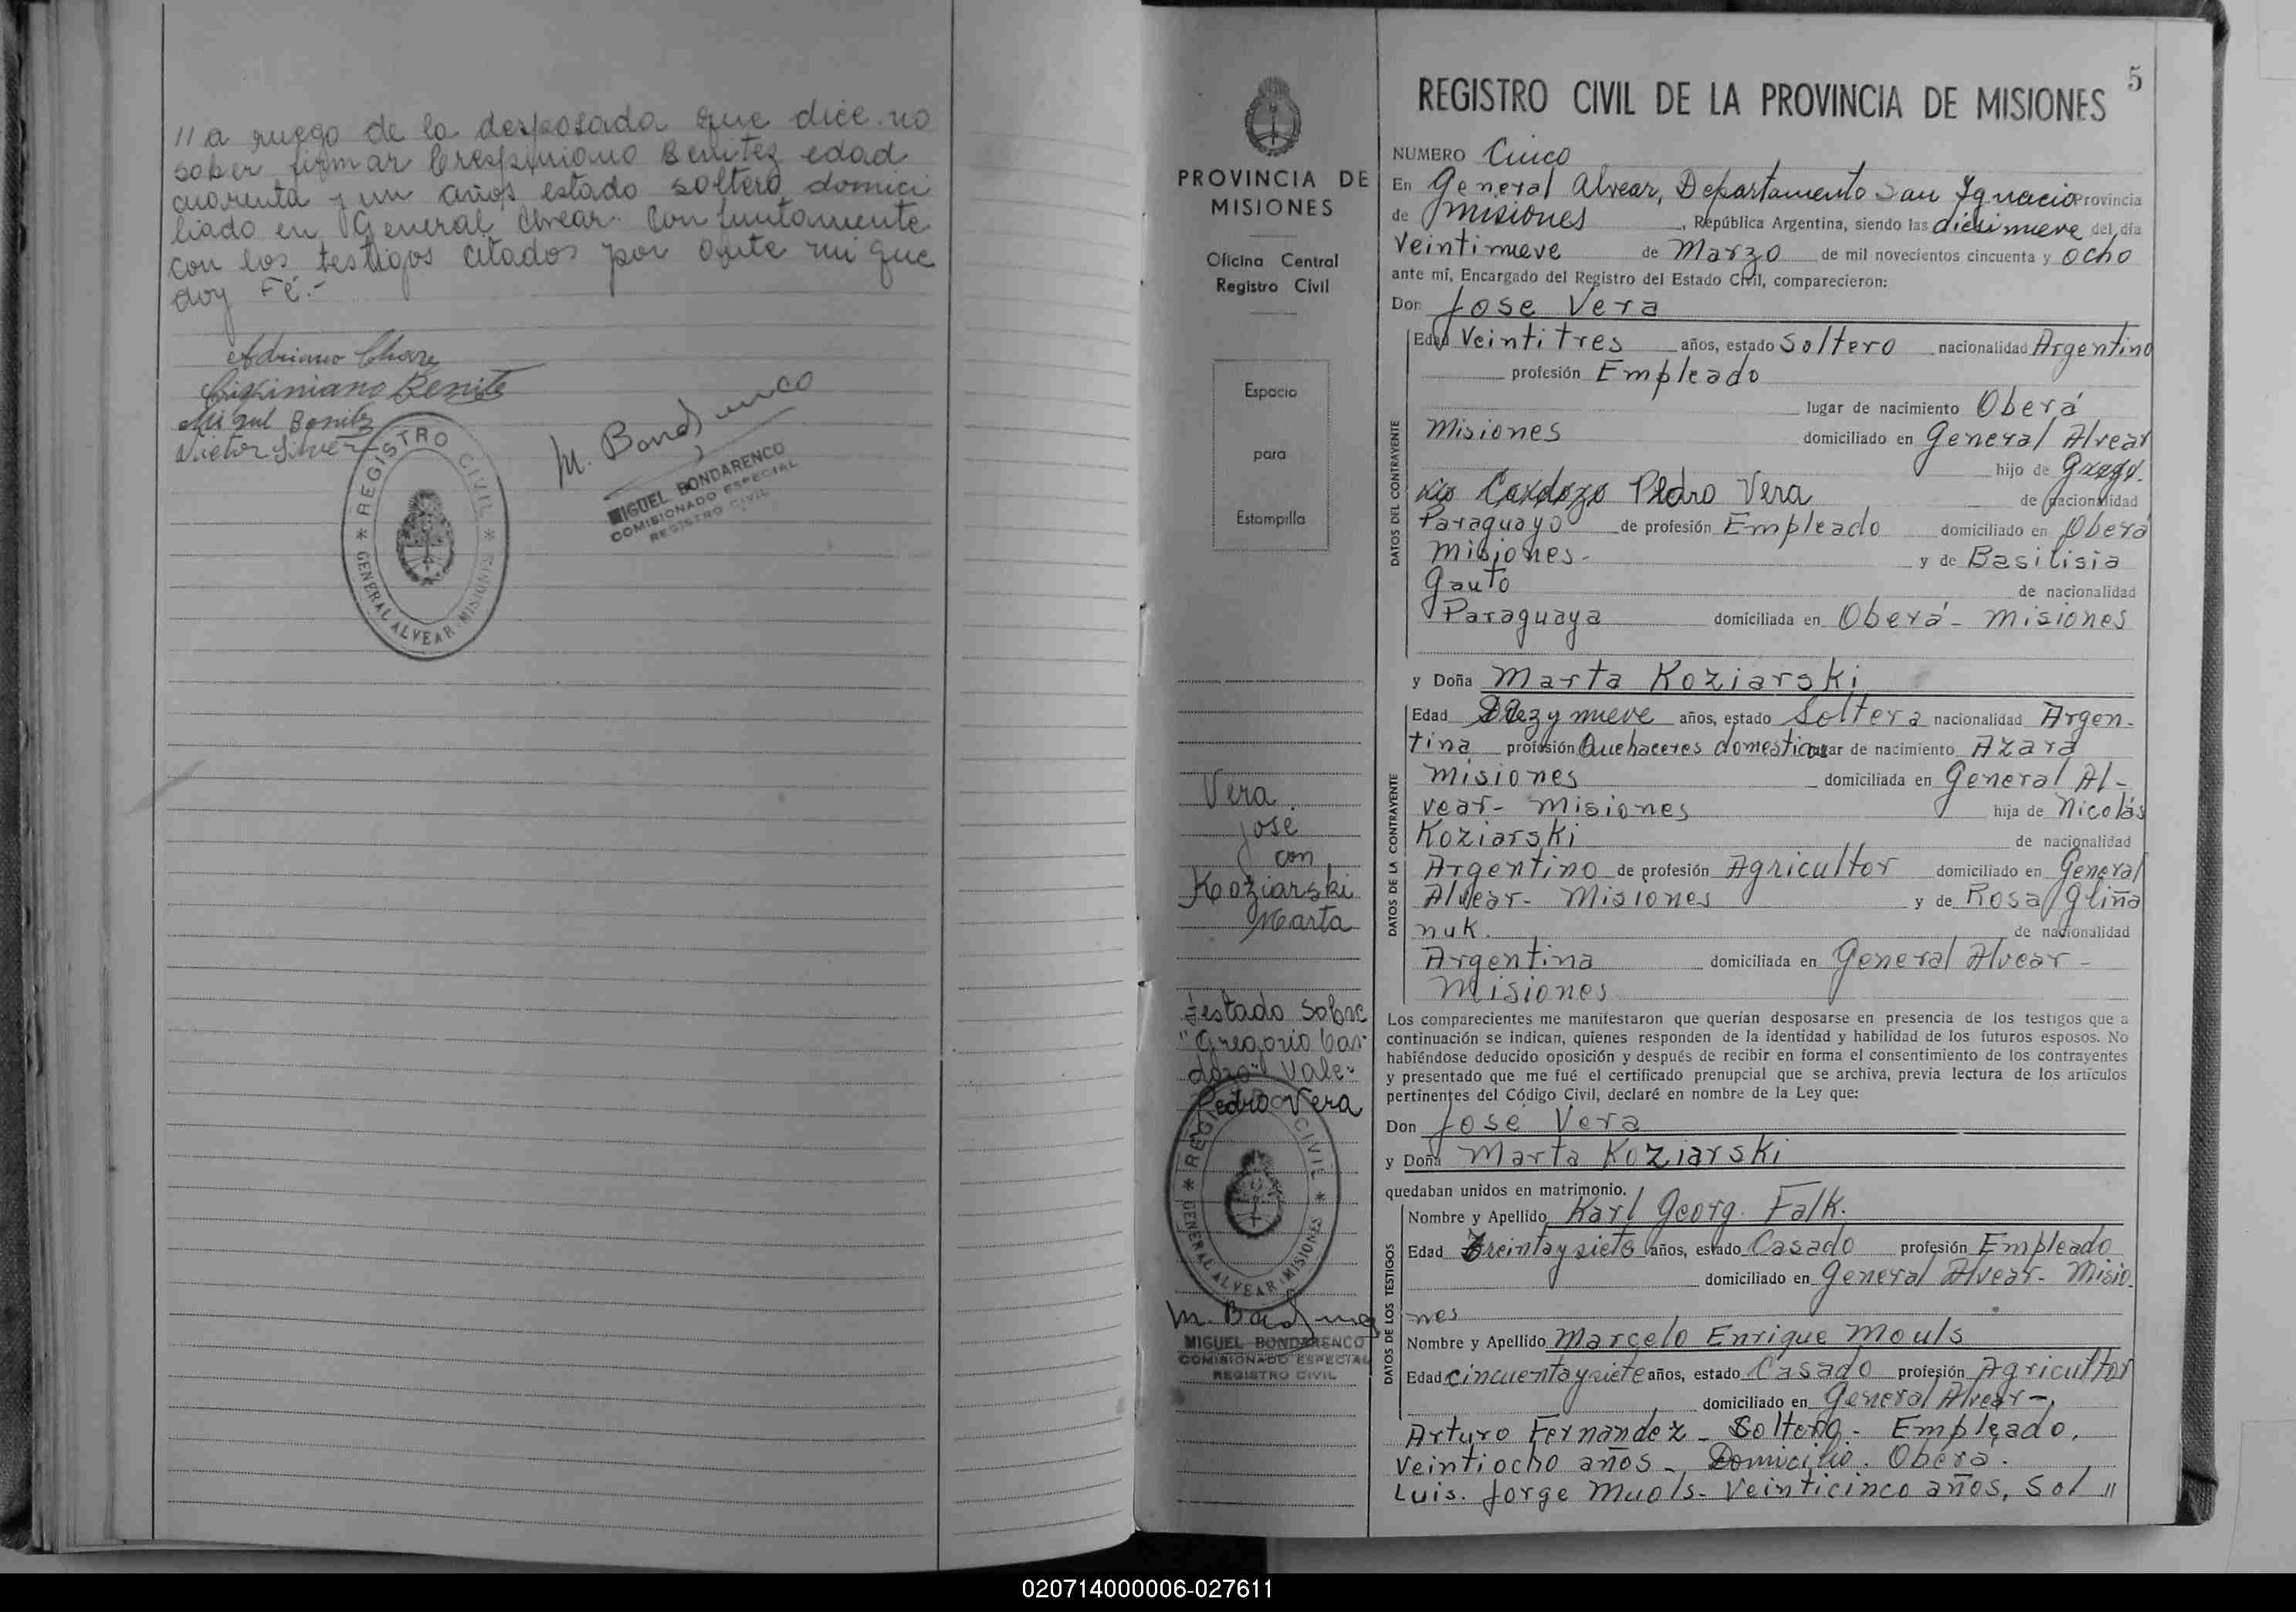 // a ruego de la desposada que dice no
saber firmar Crespiniano Benitez edad
cuarenta y un años estado soltero domici
liado en General Alvear. Conjuntamente
con los testigos citados por ante mi que
doy Fé.-
Adriano
Benite
Miguel Benitez
Victor
M. Bondarenco
MIGUEL BONDARENCO
COMISIONADO ESPECIAL
REGISTRO CIVIL
* REGISTRO CIVIL *
GENERAL ALVEAR - MISIONES
PROVINCIA DE
MISIONES
Oficina Central
Registro Civil
Espacio
para
Estampilla
Vera
José
con
Koziarski
Marta
testado sobre
"Gregorio Car-
dozo" Vale-
Pedro Vera
* REGISTRO CIVIL *
GENERAL ALVEAR - MISIONES
MIGUEL BONDARENCO
COMISIONADO ESPECIAL
REGISTRO CIVIL
5
REGISTRO CIVIL DE LA PROVINCIA DE MISIONES
NUMERO Cinco
En General Alvear, Departamento San Ignacio Provincia
de Misiones, República Argentina, siendo las diesinueve del día
Veintinueve de Marzo de mil novecientos cincuenta y ocho
ante mí, Encargado del Registro del Estado Civil, comparecieron:
Don Jose Vera
DATOS DEL CONTRAYENTE
Edad Veintitres años, estado Soltero nacionalidad Argentino
profesión Empleado
lugar de nacimiento Oberá
Misiones domiciliado en General Alvear
hijo de Grego-
rio Cardozo Pedro Vera de nacionalidad
Paraguayo de profesión Empleado domiciliado en Oberá
Misiones- y de Basilisia
Gauto de nacionalidad
Paraguaya domiciliada en Oberá- Misiones
y Doña Marta Koziarski
DATOS DE LA CONTRAYENTE
Edad Diez y nueve años, estado Soltera nacionalidad Argen-
tina profesión Quehaceres domesticos lugar de nacimiento Azara
Misiones domiciliada en General Al-
vear- Misiones hija de Nicolás
Koziarski de nacionalidad
Argentino de profesión Agricultor domiciliado en General
Alvear- Misiones y de Rosa Gliña
nuk. de nacionalidad
Argentina domiciliada en General Alvear-
Misiones
Los comparecientes me manifestaron que querían desposarse en presencia de los testigos que a
continuación se indican, quienes responden de la identidad y habilidad de los futuros esposos. No
habiéndose deducido oposición y después de recibir en forma el consentimiento de los contrayentes
y presentado que me fué el certificado prenupcial que se archiva, previa lectura de los artículos
pertinentes del Código Civil, declaré en nombre de la Ley que:
Don José Vera
y Doña Marta Koziarski
quedaban unidos en matrimonio.
DATOS DE LOS TESTIGOS
Nombre y Apellido Karl Georg. Falk.
Edad treinta y siete años, estado Casado profesión Empleado
domiciliado en General Alvear- Misio-
nes
Nombre y Apellido Marcelo Enrique Mouls
Edad cincuenta y siete años, estado Casado profesión Agricultor
domiciliado en General Alvear-
Arturo Fernandez- Soltero.- Empleado.
Veintiocho años- Domicilio. Oberá.
Luis. Jorge Muols- Veinticinco años, Sol //
020714000006-027611